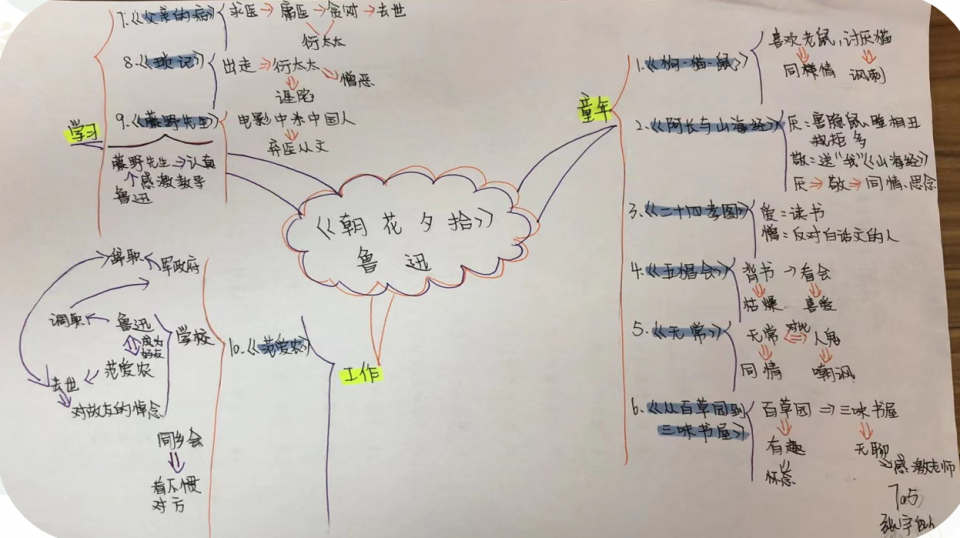 《朝花夕拾》
鲁迅
童年
1.《狗·猫·鼠》
喜欢老鼠，讨厌猫
同情 讽刺
2.《阿长与山海经》
厌：害隐鼠，睡相丑
规矩多
敬：送“我”《山海经》
厌→敬→同情、思念
3.《二十四孝图》
爱：读书
憎：反对白话文的人
4.《五猖会》
背书→看会
枯燥 喜爱
5.《无常》
无常 对比 人鬼
同情 嘲讽
6.《从百草园到
三味书屋》
百草园⇒三味书屋
有趣 无聊
怀念 感激老师
学习
7.《父亲的病》
求医→庸医→ →去世
衍太太
8.《琐记》
出走→衍太太
诬陷 憎恶
9.《藤野先生》
电影中杀中国人
弃医从文
藤野先生→认真
感激教导
鲁迅
工作
10.《范爱农》
学校
辞职 军政府
调职 鲁迅
成为
好友
去世 范爱农
对故友的悼念
同乡会
看不惯
对方
705
张宇